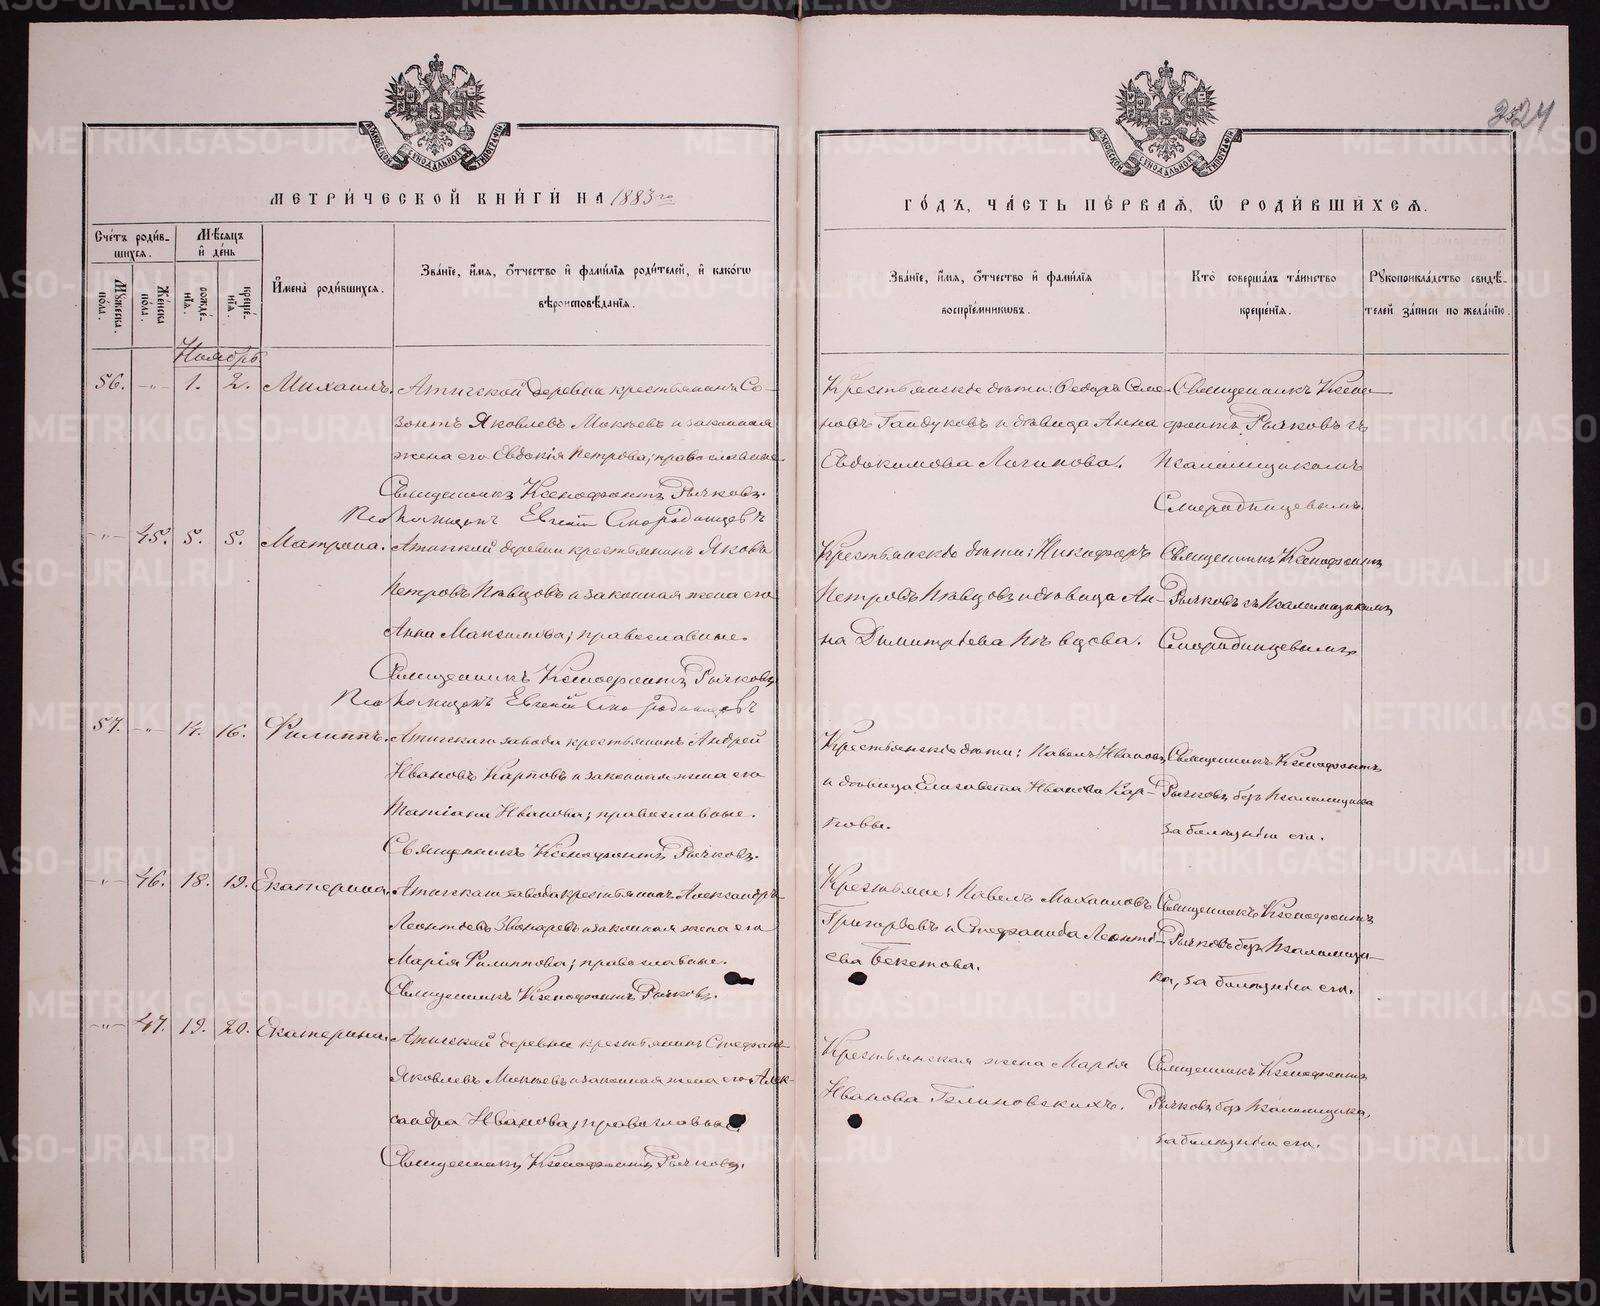 324
МЕТРИ́ЧЕСКОЙ КНИ́ГИ НА 1883 го
Сче́тъ роди́в-
шихся.
Мѣ́сяцъ
и҆ де́нь
Мꙋ́жеска пола.
Же́нска пола.
рожде́-
нїѧ.
креще́-
нїѧ.
И҆мена̀ роди́вшихся.
Зва́нїе, и҆́мѧ, ѻ҆́тчество и҆ фами́лїѧ роди́телей, и҆ како́гѡ
вѣроисповѣ́данїѧ.
Ноябрь.
56. -"- 1. 2. Михаилъ. Атигской деревни крестьянинъ Со-
зонтъ Яковлевъ Мокѣевъ и законная
жена его Евдокія Петрова; православные.
Священникъ Ксенофонтъ Рычковъ.
Псаломщикъ Евгеній Смородинцевъ
-"- 45. 5. 5. Матрона. Атигской деревни крестьянинъ Яковъ
Петровъ Пѣвцовъ и законная жена его
Анна Максимова; православные.
Священникъ Ксенофонтъ Рычковъ
Псаломщикъ Евгеній Смородинцевъ
57. -"- 14. 16. Филиппъ. Атигскаго завода крестьянинъ Андрей
Ивановъ Карповъ и законная жена его
Татіана Иванова; православные.
Священникъ Ксенофонтъ Рычковъ.
-"- 46. 18. 19. Екатерина. Атигскаго завода крестьянинъ Александръ
Леонтьевъ Звонаревъ и законная жена его
Марія Филиппова; православные.
Священникъ Ксенофонтъ Рычковъ.
-"- 47. 19. 20. Екатерина. Атигской деревни крестьянинъ Стефанъ
Яковлевъ Мокѣевъ и законная жена его Алек-
сандра Иванова; православные.
Священникъ Ксенофонтъ Рычковъ.
ГО́ДЪ, ЧА́СТЬ ПЕ́РВАѦ, Ѡ҆ РОДИ́ВШИХСѦ.
Зва́нїе, и҆́мѧ, ѻ҆́тчество и҆ фами́лїѧ
воспрїе́мникѡвъ.
Кто̀ соверша́лъ та́инство
креще́нїѧ.
Рꙋкоприкла́дство свидѣ́-
телей за́писи по жела́нїю.
Крестьянскіе дѣти: Ѳедоръ Семе-
новъ Гайдуковъ и дѣвица Анна
Евдокимова Логинова.
Священникъ Ксено-
фонтъ Рычковъ съ
псаломщикомъ
Смородинцевымъ.
Крестьянскіе дѣти: Никифоръ
Петровъ Пѣвцовъ и дѣвица Ан-
на Димитріева Пѣвцова.
Священникъ Ксенофонтъ
Рычковъ съ псаломщикомъ
Смородинцевымъ.
Крестьянскіе дѣти: Павелъ Ивановъ
и дѣвица Елизавета Иванова Кар-
повы.
Священникъ Ксенофонтъ
Рычковъ безъ псаломщика
за болѣзнію его.
Крестьяне: Павелъ Михаиловъ
Григорьевъ и Стефанида Леонть-
ева Бекетова.
Священникъ Ксенофонтъ
Рычковъ безъ псаломщи-
ка, за болѣзнію его.
Крестьянская жена Марія
Иванова Галиновскихъ.
Священникъ Ксенофонтъ
Рычковъ безъ псаломщика,
за болѣзнію его.
METRIKI.GASO-URAL.RU